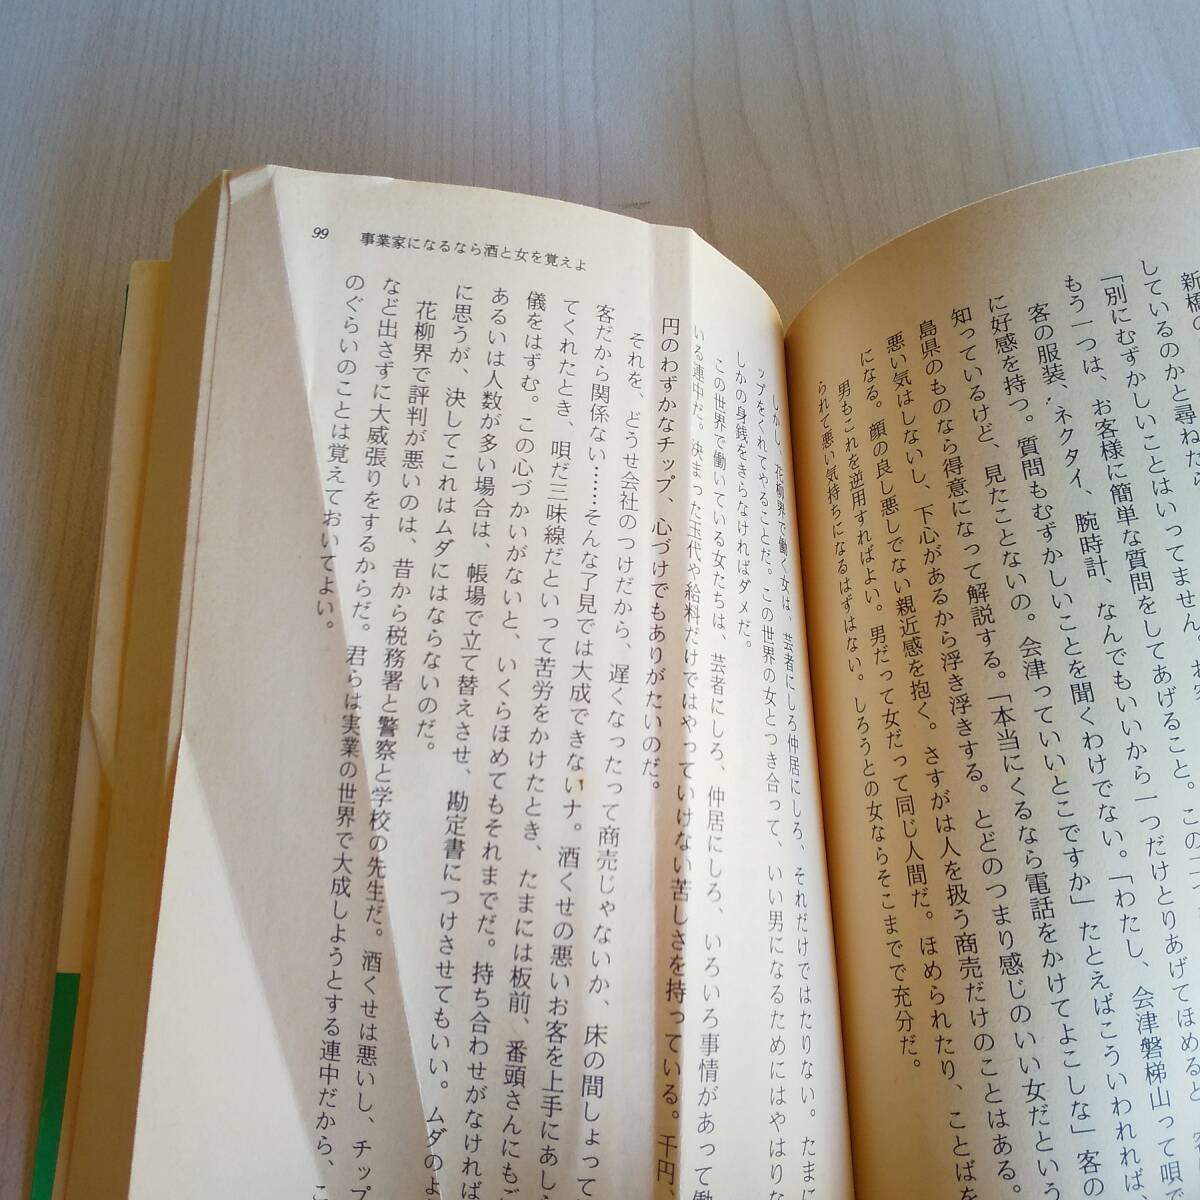 新橋の
しているのかと尋ねたら
「別にむずかしいことはいってません。お
もう一つは、お客様に簡単な質問をしてあげること。この
客の服装、ネクタイ、腕時計、なんでもいいから一つだけとりあげてほめると
に好感を持つ。質問もむずかしいことを聞くわけでない。「わたし、会津磐梯山って唄で
知っているけど、見たことないの。会津っていいとこですか」たとえばこういわれれば
島県のものなら得意になって解説する。「本当にくるなら電話をかけてよこしな」客の
悪い気はしないし、下心があるから浮き浮きする。とどのつまり感じのいい女だという
になる。顔の良し悪しでない親近感を抱く。さすがは人を扱う商売だけのことはある。
男もこれを逆用すればよい。男だって女だって同じ人間だ。ほめられたり、ことばを
られて悪い気持ちになるはずはない。しろうとの女ならそこまでで充分だ。
99 事業家になるなら酒と女を覚えよ
しかし、花柳界で働く女は、芸者にしろ仲居にしろ、それだけではたりない。たまに
ップをくれてやることだ。この世界の女とつき合って、いい男になるためにはやはり
しかの身銭をきらなければダメだ。
この世界で働いている女たちは、芸者にしろ、仲居にしろ、いろいろ事情があって働
いる連中だ。決まった玉代や給料だけではやっていけない苦しさを持っている。千円、
円のわずかなチップ、心づけでもありがたいのだ。
それを、どうせ会社のつけだから、遅くなったって商売じゃないか、床の間しょって
客だから関係ない……そんな了見では大成できないナ。酒くせの悪いお客を上手にあしら
てくれたとき、唄だ三味線だといって苦労をかけたとき、たまには板前、番頭さんにもご
儀をはずむ。この心づかいがないと、いくらほめてもそれまでだ。持ち合わせがなければ
あるいは人数が多い場合は、帳場で立て替えさせ、勘定書につけさせてもいい。ムダのよ
に思うが、決してこれはムダにはならないのだ。
花柳界で評判が悪いのは、昔から税務署と警察と学校の先生だ。酒くせは悪いし、チップ
など出さずに大威張りをするからだ。君らは実業の世界で大成しようとする連中だから、こ
のぐらいのことは覚えておいてよい。